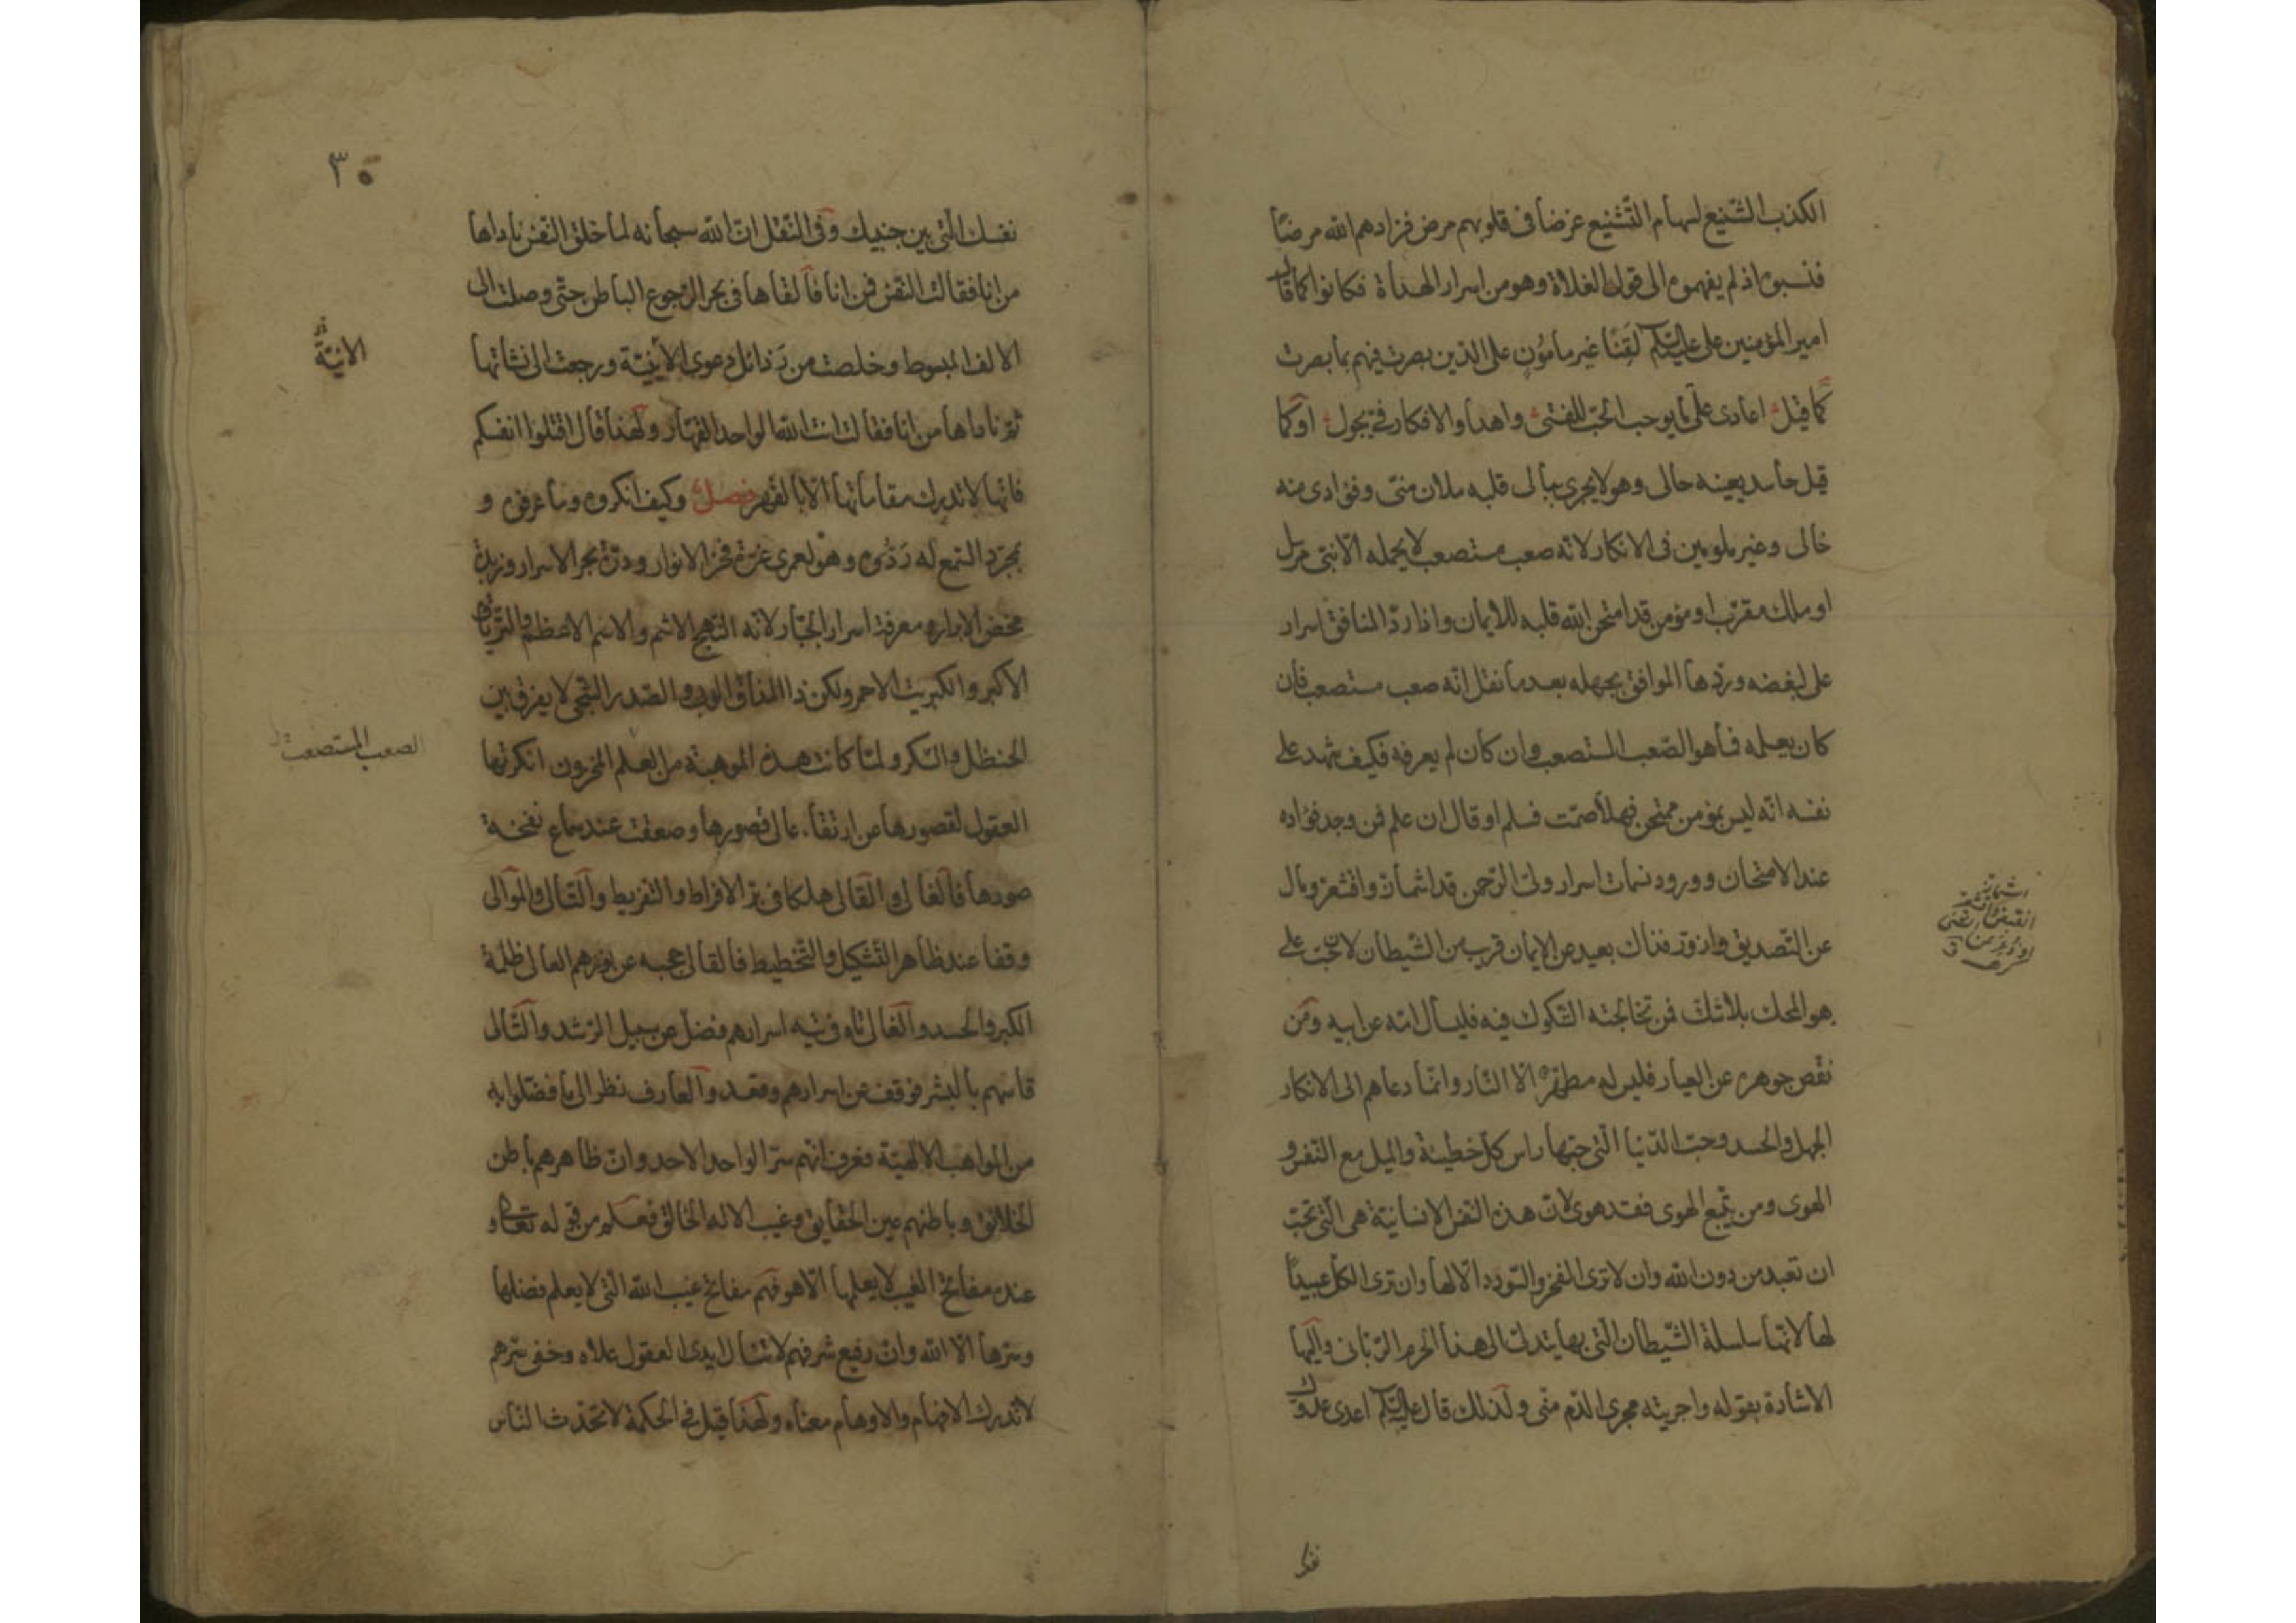 الكذب الشنيع لسهام التشنيع غرضا فى قلوبهم مرض فزادهم الله مرضًا
فنسبوه اذ لم يفهموه الى قول الغلاة وهو من اسرار الهداة فكانوا كما قال
امير المؤمنين على عليه السلم لَقِنًا غير مامُونٍ على الذين بصرت فيهم بما بصرت
كما قيل اعادى على ما يوجب الحبّ للفتى واهدأ والافكار فىّ تجول اوكما
قيل حاسد يعينه حالى وهو لا يجرى ببالى قلبه ملان منّى وفؤادى منه
خالى وغير ملومين فى الانكار لانّه صعب مستصعب لا يحمله الّا نبى مرسل
او ملك مقرّب او مؤمن قد امتحن الله قلبه للايمان واذا ردّ المنافق اسرار
على لبغضه وردّها الموافق بجهله بعد ما نقل انّه صعب مستصعب فان
كان يعلمه فما هو الصّعب المستصعب وان كان لم يعرفه فكيف شهد على
نفسه انّه ليس بمؤمن ممتحن فهلّا صمّت فسلم او قال ان علم فمن وجد فؤاده
عند الامتحان وورود نسمات اسرار ولىّ الرّحمن قد اشمأنّ واقشعرّ ومال
عن التّصديق وازورّ فذاك بعيد عن الإيمان قريب من الشّيطان لانّ حبّ على
هو المحك بلا شكّ فمن تخالجته الشّكوك فيه فليسأل امّه عن ابيه ومن
نقص جوهره عن العيار فليس له مطهّرٌ الّا النّار وانّما دعاهم الى الانكار
الجهل والحسد وحبّ الدّنيا الّتى حبّها راس كلّ خطيئة والميل مع النّفس و
الهوى ومن يتّبع الهوى فقد هوى لانّ هذه النّفس الانسانيّة هى الّتى تحبّ
ان تعبد من دون الله وان لا ترى الفخر والسّودد الّا لها وان ترى الكلّ عبيدًا
لها لانّها سلسلة الشّيطان الّتى بها يتدلّى الى هذا الحرم الرّبّانى واليها
الاشارة بقوله واجريته مجرى الدّم منّى ولذلك قال عليه السلم اعدى عدوّك
اشمأنّ
انقبض واقشعر
نفس
٣٥
نفسك الّتى بين جنبيك وفى النّقل انّ الله سبحانه لما خلق النّفس ناداها
من انا فقالت النّفس فمن انا فالقاها فى بحر الرّجوع الباطن حتّى وصلت الى
الالف المبسوط وخلصت من رَذائل دعوى الأَنِيّة ورجعت الى نشاتها
ثمّ ناداها من انا فقالت انت الله الواحد القهّار ولهذا قال اقتلوا انفسكم
فانّها لا تدرك مقاماتها الّا بالقهر فصل وكيف انكروه وما عرفوه و
بمجرّد السّمع له رَدُّوه وهو لعمرى غرّة فخر الانوار ودرّة بحر الاسرار وزبدة
مخض الابرار ومعرفة اسرار الجبّار لانّه النّهج الاشم والاسم الاعظم والتّرياق
الاكبر والكبريت الاحمر ولكن ذا المذاق الوبى والصّدر الشّجى لا يفرق بين
الحنظل والسّكر ولمّا كانت هذه الموهبة من العلم المخزون انكرتها
العقول لقصورها عن ارتقاء عالى قصورها وصعقت عند سماع نفخة
صورها فالغالى والقالى هلكا فى بر الافراط والتّفريط والتّالى والموالى
وقفا عند ظاهر التّشكيل والتّخطيط فالقالى حجبه عن نورهم العالى ظلمة
الكبر والحسد والغالى تاه فى تيه اسرارهم فضلّ عن سبيل الرّشد والتّالى
قاسهم بالبشر فوقف عن اسرارهم وقعد والعارف نظر الى ما فضّلوا به
من المواهب الالهيّة فعرف انّهم سرّ الواحد الاحد وانّ ظاهرهم باطن
الخلائق وباطنهم عين الحقايق وغيب الاله الخالق فعلم من قوله تعالى و
عنده مفاتح الغيب لا يعلمها الّا هو فهم مفاتح غيب الله الّتى لا يعلم فضلها
وسرّها الّا الله وانّ رفيع شرفهم لا تنال ايدى العقول علاه وخفى سرّهم
لا تدرك الافهام والاوهام معناه ولهذا قيل فى الحكمة لا تحدّث النّاس
الانيّة
الصعب المستصعب